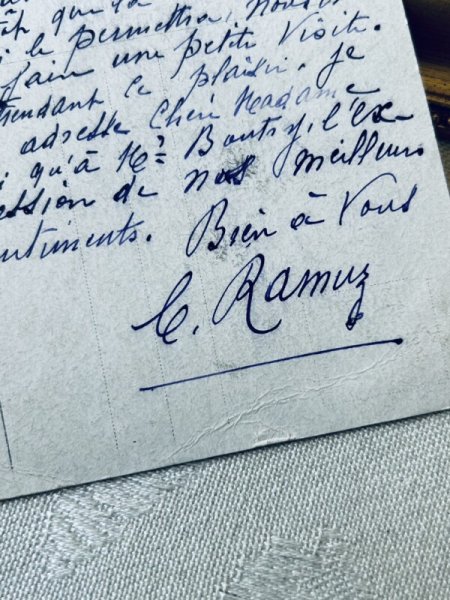 que la
le permettra, nous
faire une petite visite.
tendant ce plaisir, je
adresse chère Madame
qu'à Mr Boutry, l'ex-
ession de nos meilleurs
ntiments. Bien à Vous
C. Ramuz